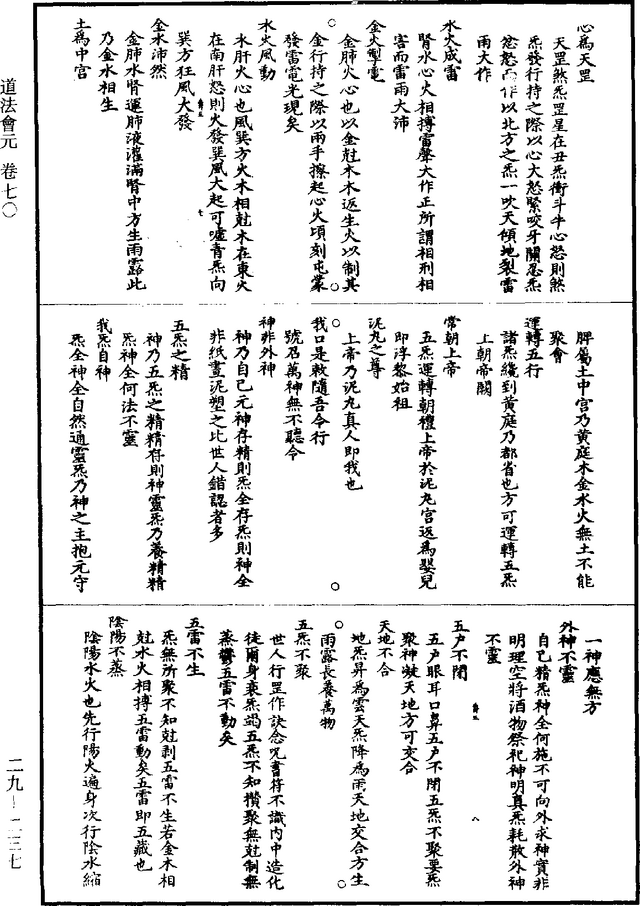 道法會元 卷七〇
心爲天罡
天罡煞炁罡星在丑炁衝斗牛心怒則煞
炁發行持之際以心大怒緊咬牙關忍炁
忿怒而作以北方之炁一吹天傾地裂雷
雨大作
水火成雷
腎水心火相搏雷聲大作正所謂相刑相
害而雷雨大沛
金火掣電
金肺火心也以金尅木木返生火以制其
金行持之際以兩手擦起心火頃刻屯蒙
發雷電光現矣
水火風動
木肝火心也風巽方火木相尅木在東火
在南肝怒則火發巽風大起可噓青炁向
巽方狂風大發
金水沛然
金肺水腎運肺液灌滿腎中方生雨露此
乃金水相生
土爲中宮
脾屬土中宮乃黃庭木金水火無土不能
聚會
運轉五行
諸炁纔到黃庭乃都省也方可運轉五炁
上朝帝闕
常朝上帝
五炁運轉朝禮上帝於泥丸宮返爲嬰兒
即浮黎始祖
泥丸之尊
上帝乃泥丸真人即我也
我口是敕隨吾令行
號召萬神無不聽令
神非外神
神乃自己元神存精則炁全存炁則神全
非紙畫泥塑之比世人錯認者多
五炁之精
神乃五炁之精精存則神靈炁乃養精精
炁神全何法不靈
我炁自神
炁全神全自然通靈炁乃神之主抱元守
一神應無方
外神不靈
自己精炁神全何施不可向外求神實非
明理空將酒物祭祀神明真炁耗散外神
不靈
五戶不閉
五戶眼耳口鼻五戶不閉五炁不聚要炁
聚神凝天地方可交合
天地不合
地炁昇爲雲天炁降爲雨天地交合方生
雨露長養萬物
五炁不聚
世人行罡作訣念咒書符不識內中造化
徒爾身衰炁竭五炁不知攢聚無尅制無
蒸鬱五雷不動矣
五雷不生
炁無所聚不知尅剥五雷不生若金木相
尅水火相搏五雷動矣五雷即五藏也
陰陽不蒸
陰陽水火也先行陽火遍身次行陰水縮
二九—二二七